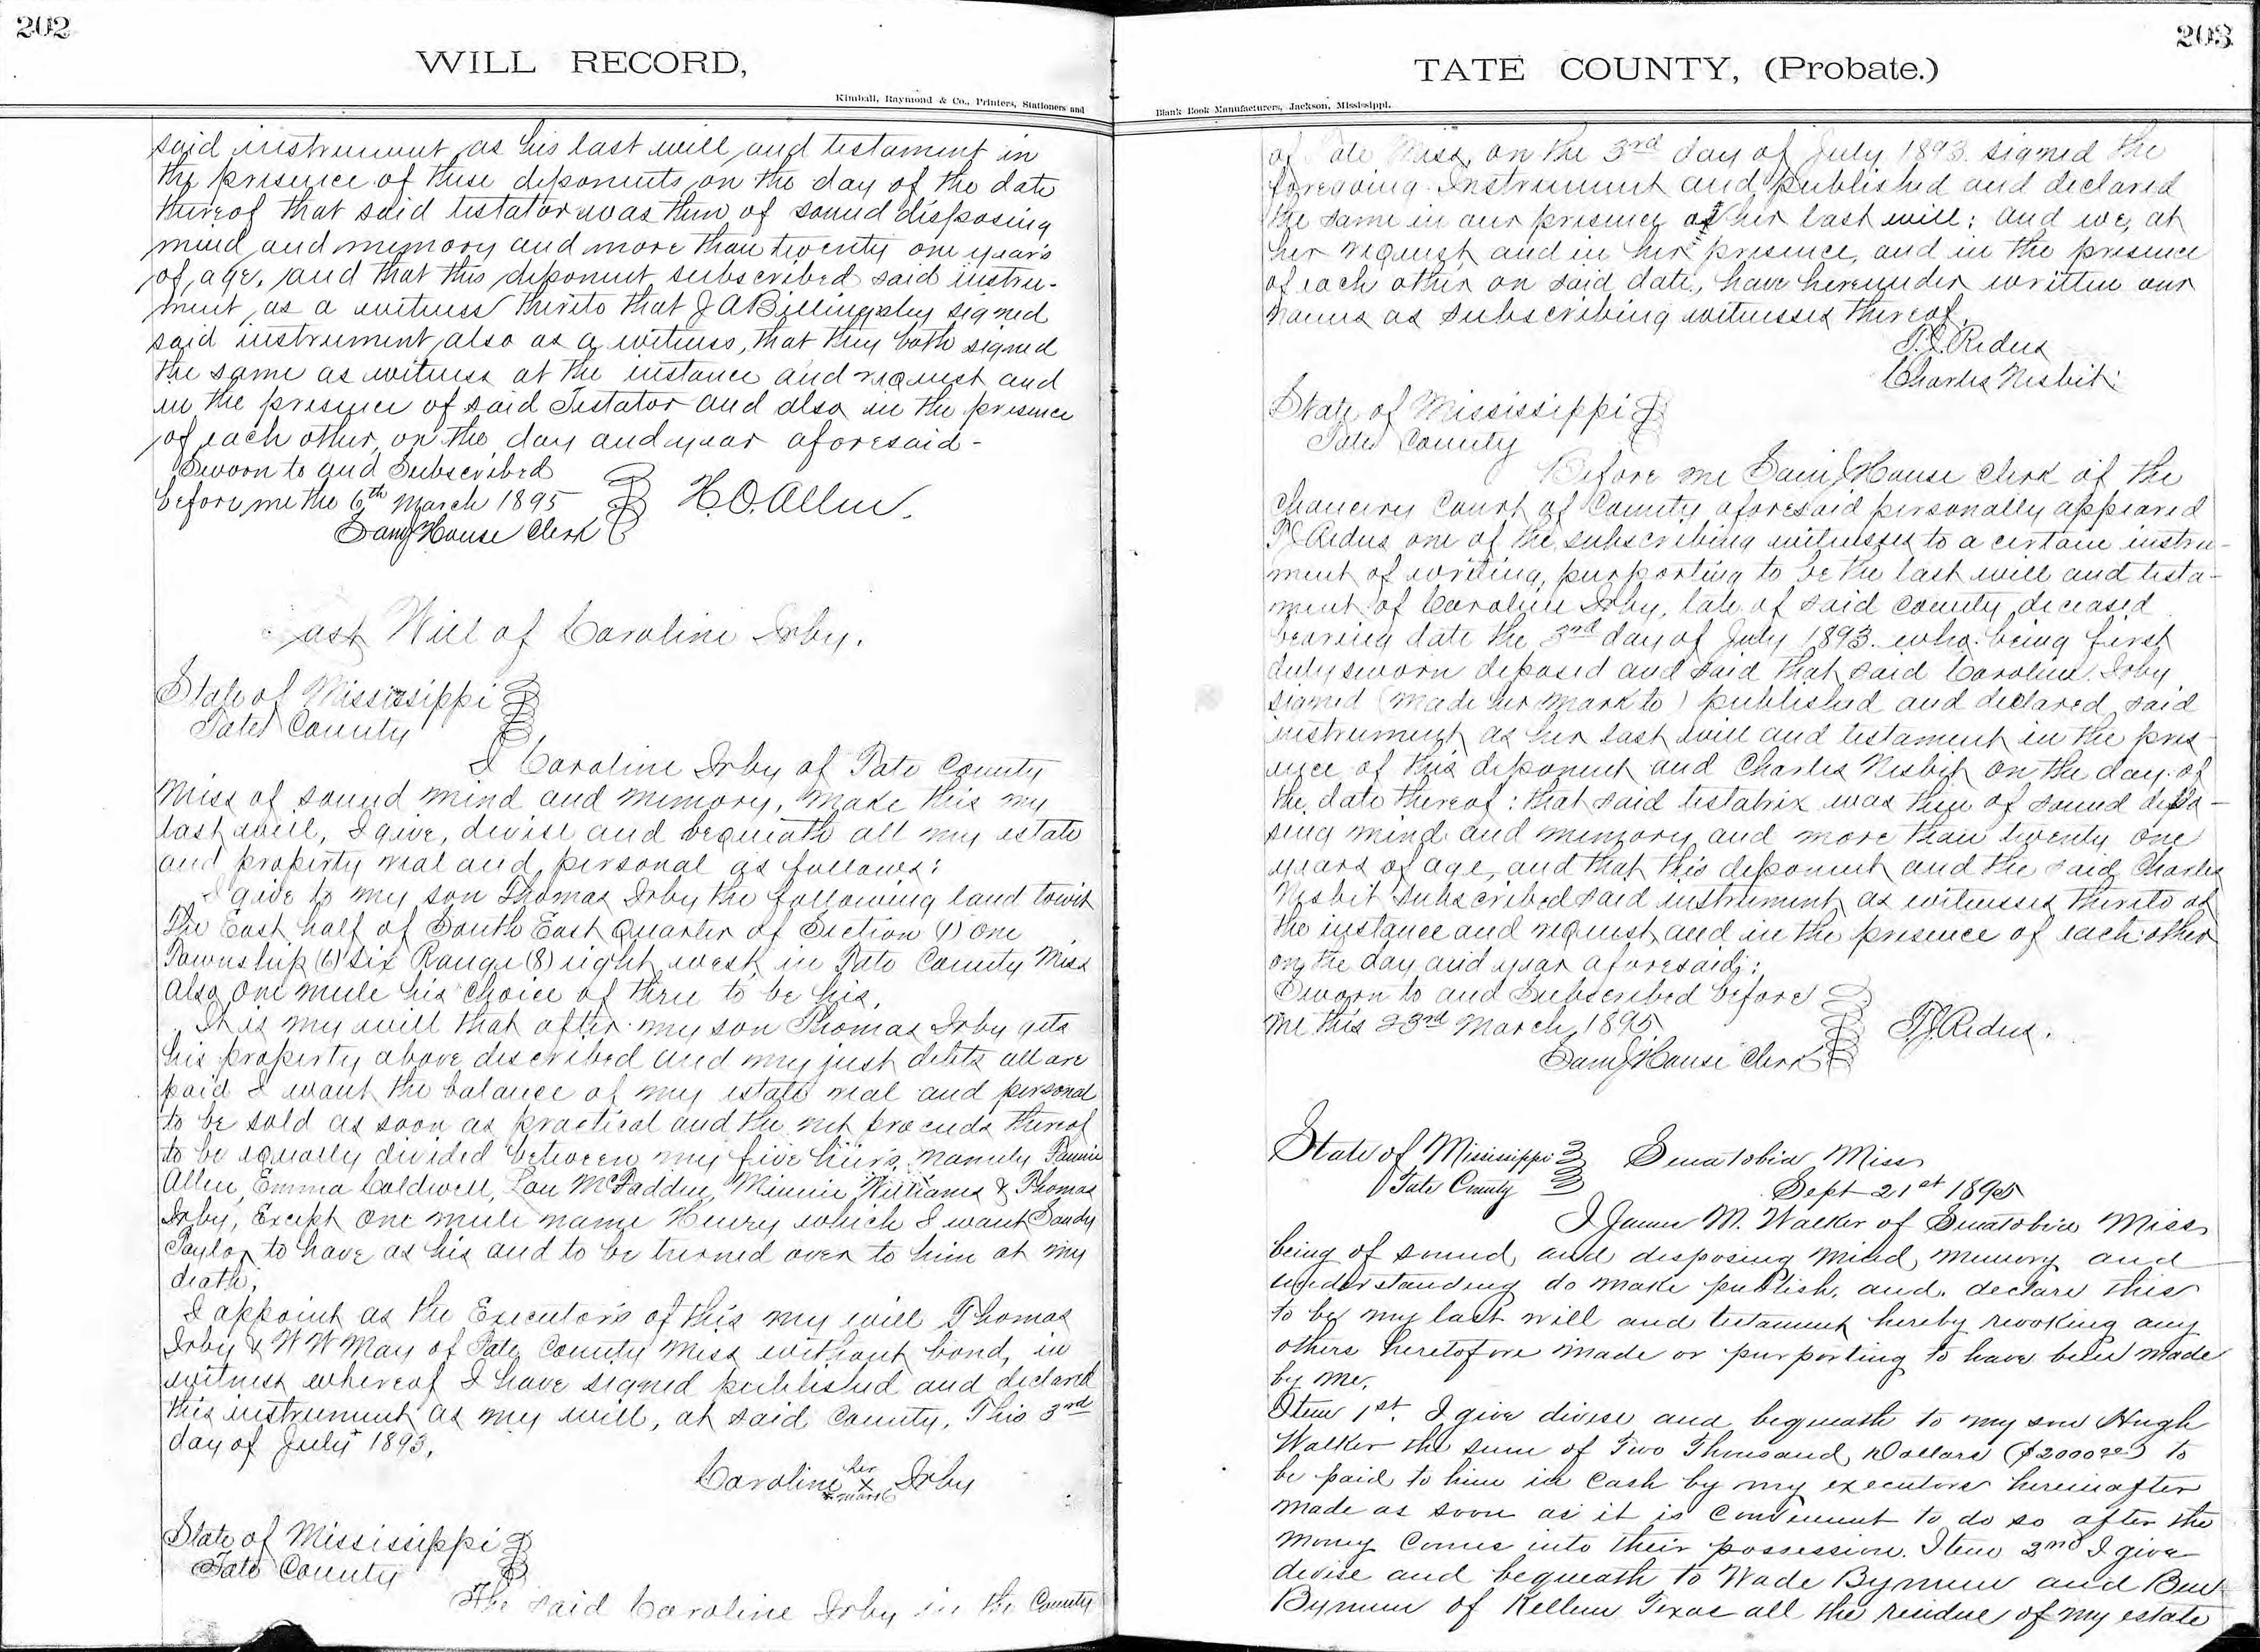 202
WILL RECORD,
Kimball, Raymond & Co., Printers, Stationers and
said instrument as his last will and testament in
the presence of these deponents on the day of the date
thereof that said testator was then of sound disposing
mind and memory and more than twenty one year's
of age, and that this deponent subscribed said instru-
ment, as a witness thereto that J A Billingsley signed
said instrument also as a witness, that they both signed
the same as witness at the instance and request and
in the presence of said Testator and also in the presence
of each other, on the day and year aforesaid -
Sworn to and Subscribed
before me the 6th March 1895
H. O. Allen.
Sam J House Clerk
ast Will of Caroline Irby.
State of Mississippi
Tate County
I Caroline Irby of Tate County
Miss of sound mind and memory, make this my
last will, I give, devise and bequeath all my estate
and property real and personal as follows:
I give to my son Thomas Irby the following land towit
The East half of South East Quarter of Section (1) one
Township (6) six Range (8) eight west in Tate County Miss
also One mule his choice of three to be his.
It is my will that after my son Thomas Irby gets
his property above described and my just debts all are
paid I want the balance of my estate real and personal
to be sold as soon as practical and the net proceeds thereof
to be equally divided between my five heirs, namely Fannie
Allen, Emma Coldwell, Lou McFadden, Minnie Williams & Thomas
Irby, Except One mule name Henry which I want Sandy
Taylor to have as his and to be turned over to him at my
death.
I appoint as the Executors of this my will Thomas
Irby & W W May of Tate County Miss without bond, in
witness whereof I have signed published and declared
this instrument as my will, at said County, This 3rd
day of July 1893.
Caroline her x mark Irby
State of Mississippi
Tate County
The said Caroline Irby in the County
203
TATE COUNTY, (Probate.)
Blank Book Manufacturers, Jackson, Mississippi.
of Tate Miss, on the 3rd day of July 1893. signed the
foregoing Instrument and published and declared
the same in our presence as her last will: and we, at
her request and in her presence, and in the presence
of each other on said date, have hereunder written our
names as subscribing witnesses thereof.
T. J. Redus
Charles Nesbit.
State of Mississippi
Tate County
Before me Sam J House Clerk of the
Chancery Court of County aforesaid personally appeared
T J Redus one of the subscribing witnesses to a certain instru-
ment of writing, purporting to be the last will and testa-
ment of Caroline Irby, late of said County deceased
bearing date the 3rd day of July 1893. who being first
duly sworn deposed and said that said Caroline Irby
signed (made her mark to) published and declared said
instrument as her last will and testament in the pres-
ence of this deponent and Charles Nesbit on the day of
the date thereof: that said testatrix was then of sound dispo-
sing mind and memory and more than twenty one
years of age, and that this deponent and the said Charles
Nesbit subscribed said instrument as witnesses thereto at
the instance and request and in the presence of each other
on the day and year aforesaid:
Sworn to and Subscribed before
me this 23rd March, 1895
T. J. Redus.
Sam J House Clerk
State of Mississippi Senatobia Miss
Tate County Sept 21st 1895
I James M. Walker of Senatobia Miss
being of sound and disposing mind, memory and
understanding do make publish, and. declare this
to be my last will and testament hereby revoking any
others heretofore made or purporting to have been made
by me.
Item 1st. I give divise and bequeath to my son Hugh
Walker the sum of Two Thousand Dollars ($2000.00) to
be paid to him in Cash by my executors hereinafter
made as soon as it is convenient to do so after the
money comes into their possession. Item 2nd I give
devise and bequeath to Wade Bynum and Ben
Bynum of Kellum Texas all the residue of my estate